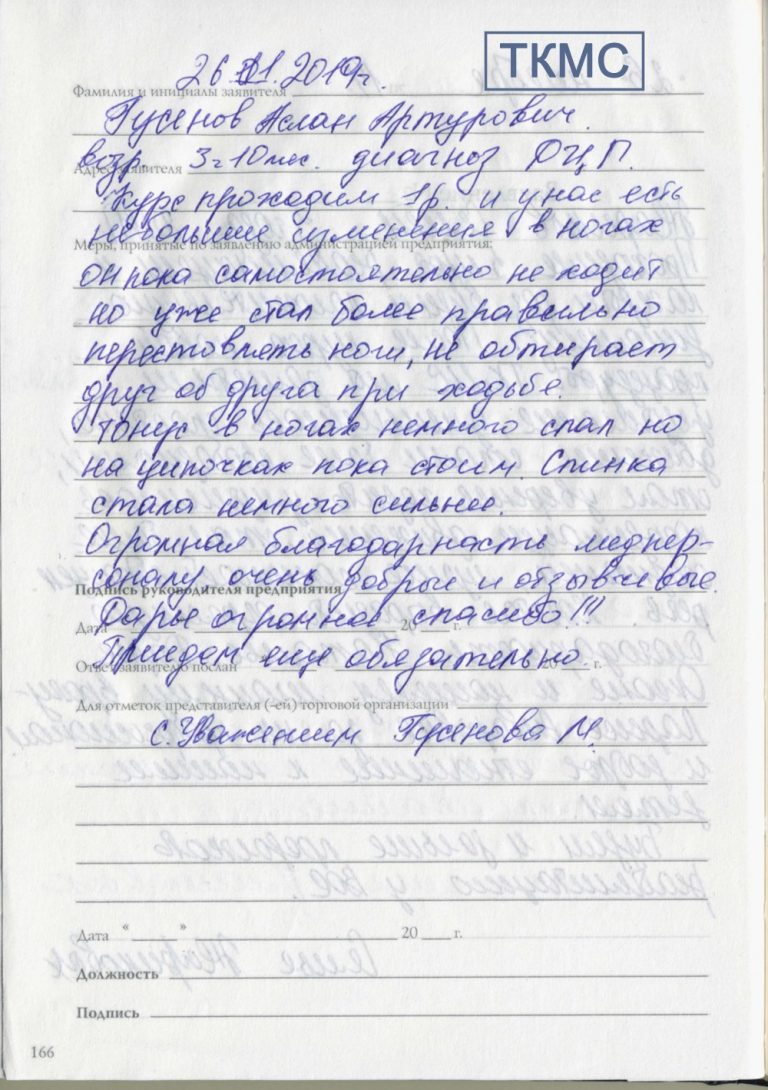 ТКМС
26.01.2019г.
Фамилия и инициалы заявителя
Гусенов Аслан Артурович.
возр. 3г10мес. диагноз ДЦП.
Адрес заявителя
Курс проходим 1р. и у нас есть
небольшие изменения в ногах
Меры, принятые по заявлению администрацией предприятия:
он пока самостоятельно не ходит
но уже стал более правильно
переставлять ноги, не обтирает
друг об друга при ходьбе.
тонус в ногах немного спал но
на ципочках пока стоим. Спинка
стала немного сильнее.
Огромная благодарность медпер-
соналу очень добрые и отзывчивые.
Подпись руководителя предприятия
Дарье огромное спасибо!!!
Дата 20 г.
Приедем еще обязательно.
Ответ заявителю послан 20 г.
Для отметок представителя (-ей) торговой организации
С. Уважением Гусенова М.
Дата « » 20 г.
Должность
Подпись
166